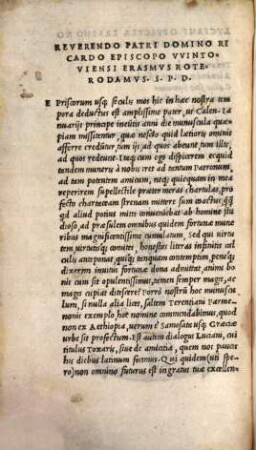 REVERENDO PATRI DOMINO RI
CARDO EPISCOPO VVINTO
VIENSI ERASMVS ROTE
RODAMVS. S. P. D.
E Priscorum usq; seculis mos hic in hæc nostra tem
pora deductus est amplissime pater, ut Calen-
nuarijs principe ineuntis anni die munuscula quæ-
piam missitentur, quæ nescio quid latioris ominis
afferre creduntur, tum ijs ad quos abeunt, tum illis,
ad quos redeunt. Itaq; cum ego dispicerem ecquid
tandem muneris à nobis iret ad tantum Patronum,
ad tam potentem amicum, neq; quicquam in mea
reperirem supellectile præter meras chartulas, pro
fecto chartaceam strenam mittere sum coactus.
quid aliud potius mitti conueniebat ab homine stu
dioso, ad præsulem omnibus quidem fortunæ mune
ribus magnificentissime cumulatum, sed qui uirtu
tem uirtutisq; comites, honestas literas infinitis cal
culis anteponas, quiq; tanquam contemptim penè
dixerim inuitis fortunæ dona admittas, animi bo
nis cum sis opulentissimus, tamen semper magis, ac
magis cupias ditescere? Porrò nostrum hoc munuscu
lum, si nulla alia licet, saltem Terentiani Parme
nonis exemplo hoc nomine commendabimus, quod
non ex Aethiopia, uerum è Samosatis usq; Græciæ
urbe sit profectum. Est autem dialogus Luciani, cui
titulus Toxaris, siue de amicitia, quem nos paucu
lis his diebus latinum fecimus. Qui quidem (uti spe
ro) non omnino futurus est ingratus tuæ excellen-